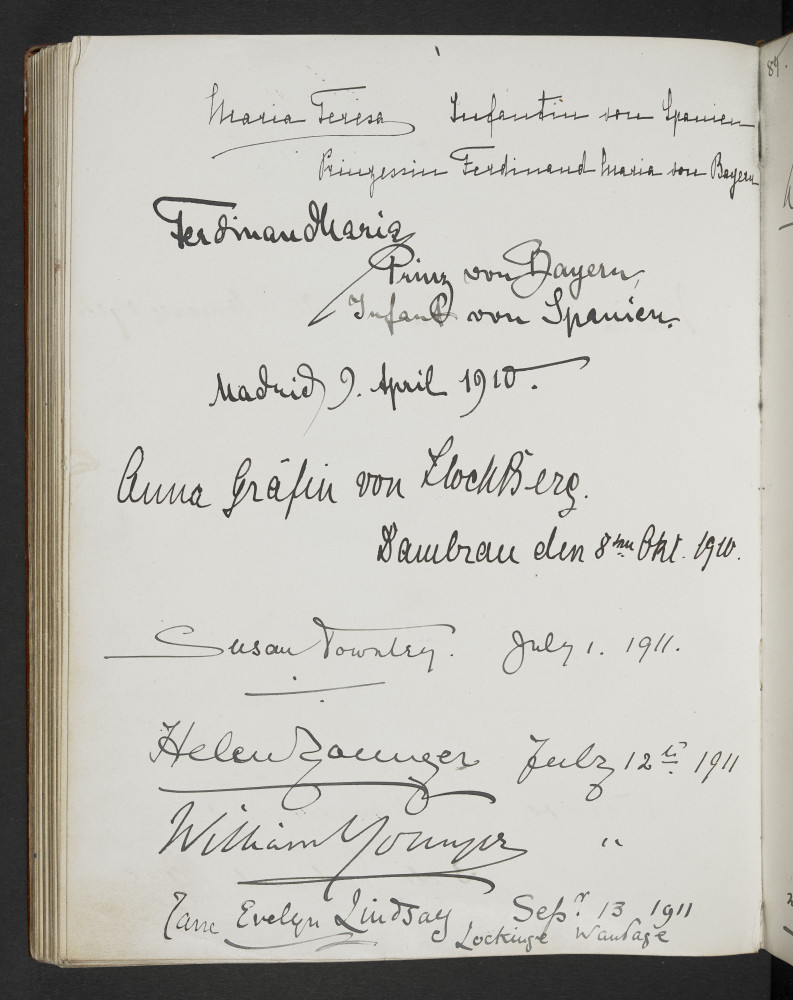 Maria Teresa Infantin von Spanien
Prinzessin Ferdinand Maria von Bayern
Ferdinand Maria
Prinz von Bayern,
Infant von Spanien.
Madrid 9. April 1910.
Anna Gräfin von StockBerg.
Dambrau den 8ten Okt. 1910.
Susan Townley. July 1. 1911.
Helen Younger July 12th 1911
William Younger "
Jane Evelyn Lindsay Sepr 13 1911
Lockinge Wantage
89.